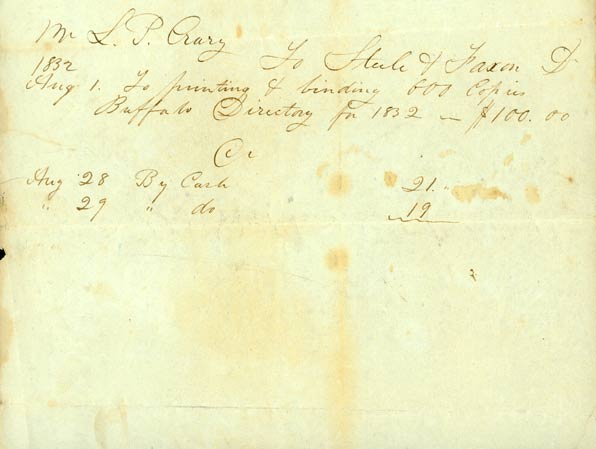 Mr L. P. Crary To Steele & Faxon Dr
1832
Aug 1. To printing & binding 600 Copies
Buffalo Directory for 1832 — $100.00
Cr
Aug 28 By Cash 21.
" 29 " do 19